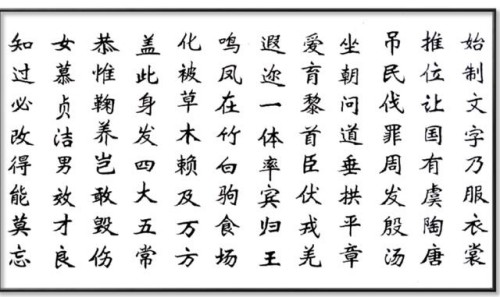 始制文字乃服衣裳
推位让国有虞陶唐
吊民伐罪周发殷汤
坐朝问道垂拱平章
爱育黎首臣伏戎羌
遐迩一体率宾归王
鸣凤在竹白驹食场
化被草木赖及万方
盖此身发四大五常
恭惟鞠养岂敢毁伤
女慕贞洁男效才良
知过必改得能莫忘